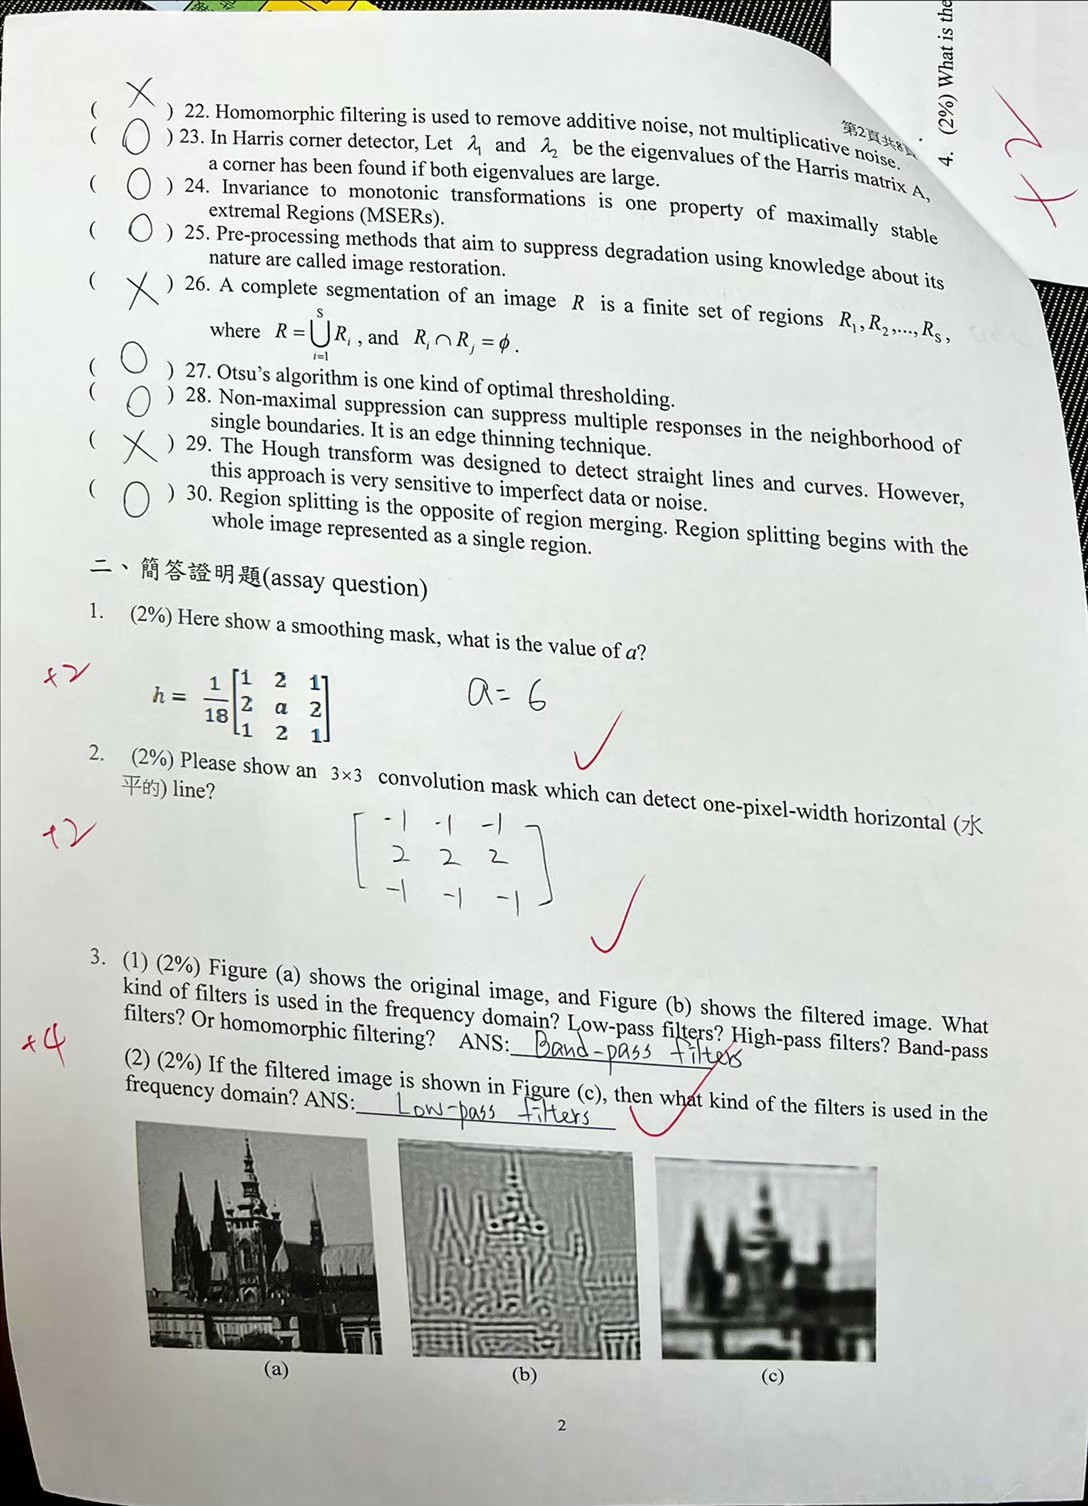 第2頁共8
4. (2%) What is the
( X ) 22. Homomorphic filtering is used to remove additive noise, not multiplicative noise.
( O ) 23. In Harris corner detector, Let λ₁ and λ₂ be the eigenvalues of the Harris matrix A,
a corner has been found if both eigenvalues are large.
( O ) 24. Invariance to monotonic transformations is one property of maximally stable
extremal Regions (MSERs).
( O ) 25. Pre-processing methods that aim to suppress degradation using knowledge about its
nature are called image restoration.
( X ) 26. A complete segmentation of an image R is a finite set of regions R₁, R₂,..., R_S,
where R = ⋃_{i=1}^{S} R_i , and R_i ∩ R_j = ϕ .
( O ) 27. Otsu's algorithm is one kind of optimal thresholding.
( O ) 28. Non-maximal suppression can suppress multiple responses in the neighborhood of
single boundaries. It is an edge thinning technique.
( X ) 29. The Hough transform was designed to detect straight lines and curves. However,
this approach is very sensitive to imperfect data or noise.
( O ) 30. Region splitting is the opposite of region merging. Region splitting begins with the
whole image represented as a single region.
二、簡答證明題(assay question)
1. (2%) Here show a smoothing mask, what is the value of a?
+2
h = 1/18 [1 2 1
2 a 2
1 2 1]
a = 6
2. (2%) Please show an 3×3 convolution mask which can detect one-pixel-width horizontal (水
平的) line?
+2
[-1 -1 -1
2 2 2
-1 -1 -1]
3. (1) (2%) Figure (a) shows the original image, and Figure (b) shows the filtered image. What
kind of filters is used in the frequency domain? Low-pass filters? High-pass filters? Band-pass
filters? Or homomorphic filtering? ANS: Band-pass filters
+4
(2) (2%) If the filtered image is shown in Figure (c), then what kind of the filters is used in the
frequency domain? ANS: Low-pass filters
(a)
(b)
(c)
2